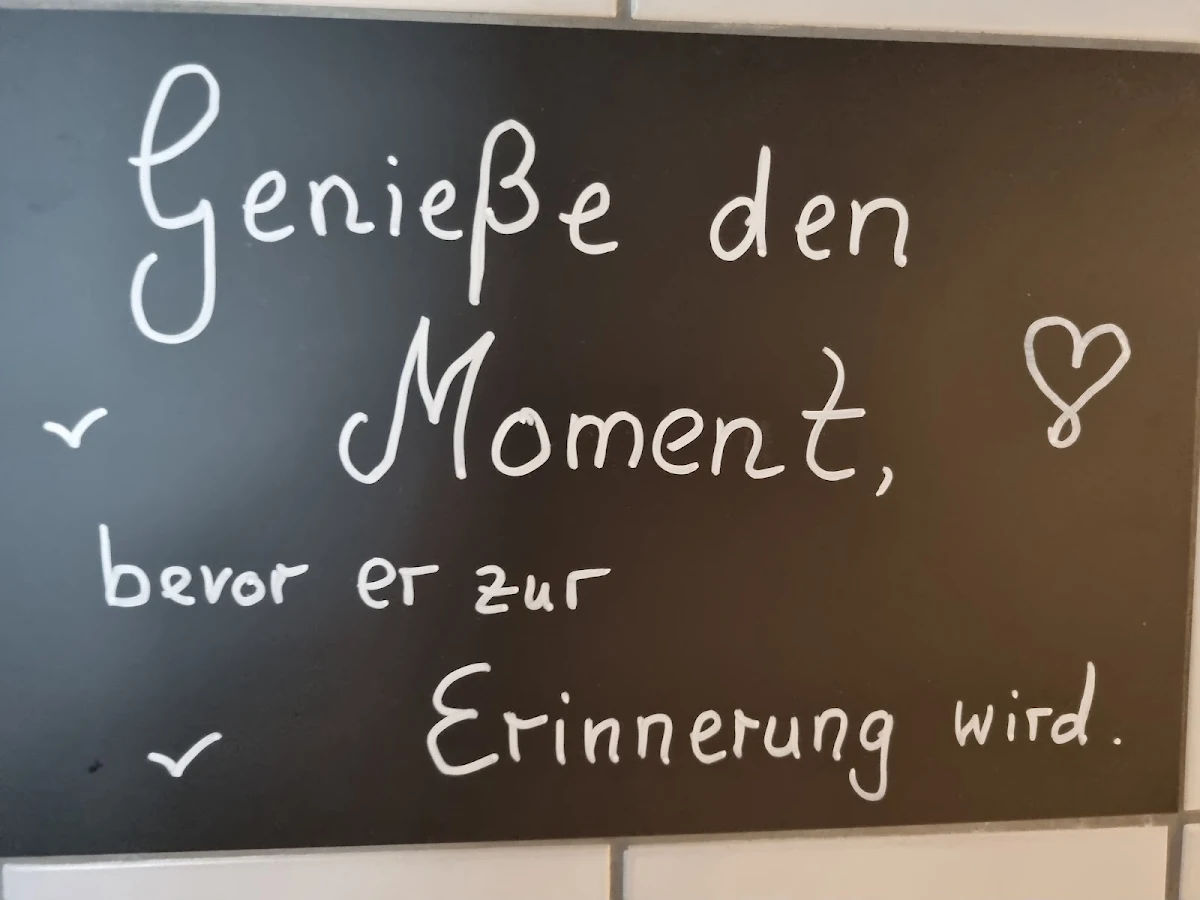 Genieße den
Moment,
bevor er zur
Erinnerung wird.